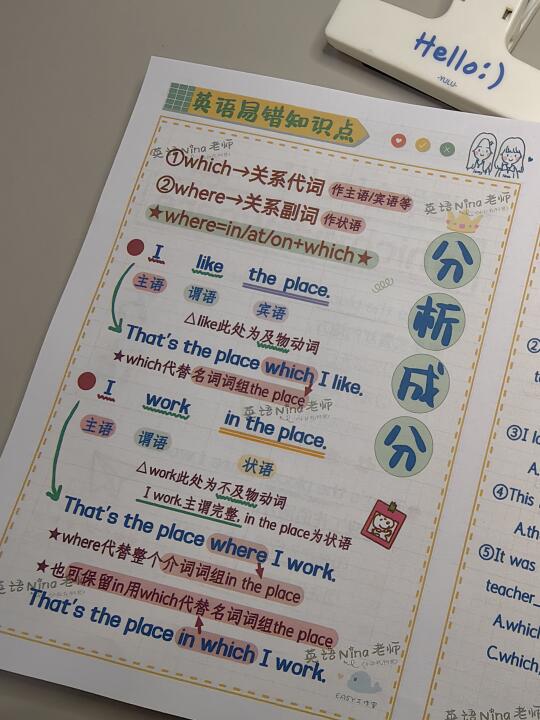 Hello:)
英语易错知识点
英语Nina老师
①which→关系代词 作主语/宾语等
②where→关系副词 作状语
英语Nina老师
★where=in/at/on+which★
分析成分
I like the place.
主语 谓语 宾语
△like此处为及物动词
That's the place which I like.
★which代替名词词组the place
英语Nina老师
I work in the place.
主语 谓语 状语
△work此处为不及物动词
I work.主谓完整, in the place为状语
That's the place where I work.
★where代替整个介词词组in the place
★也可保留in用which代替名词词组the place
英语Nina老师
That's the place in which I work.
英语Nina老师
②
③I lo
A.
④This
A.th
⑤It was
teacher_
A.which
C.which,
英语Nina老师